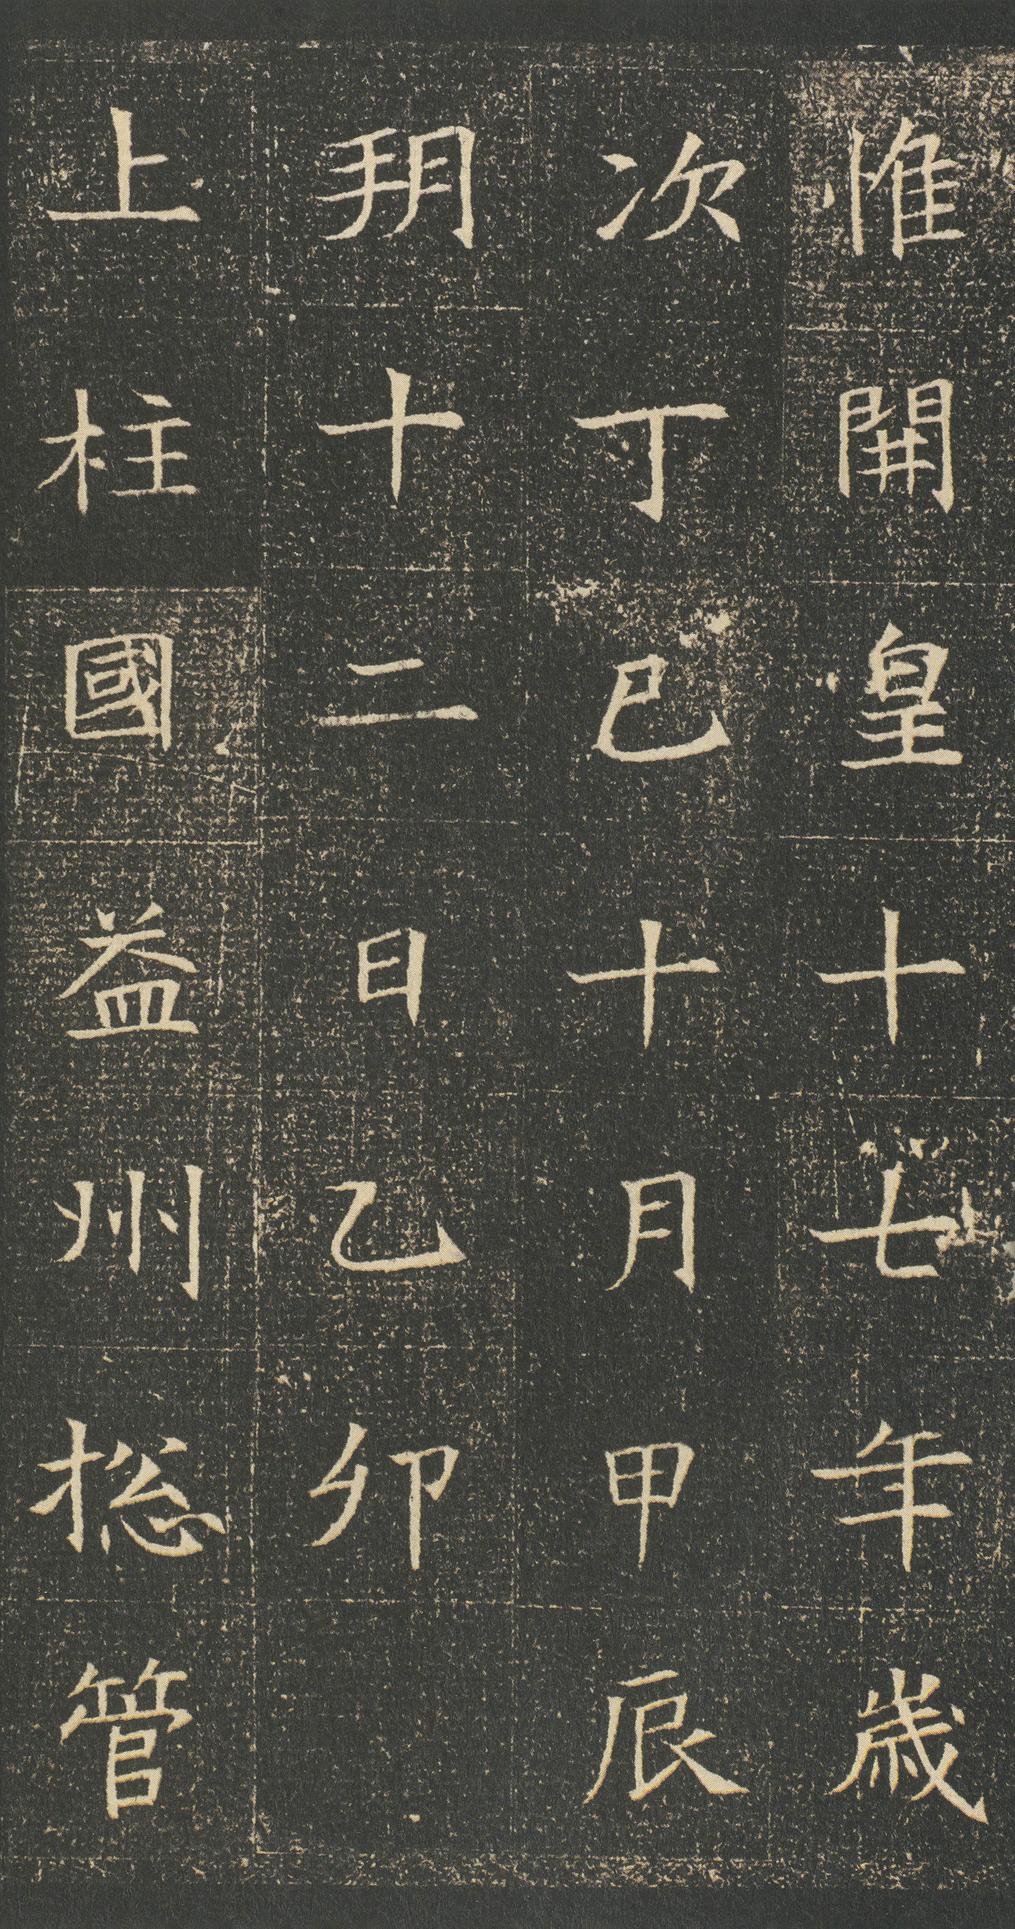 惟開皇十七年歲
次丁巳十月甲辰
朔十二日乙卯
上柱國益州捴管